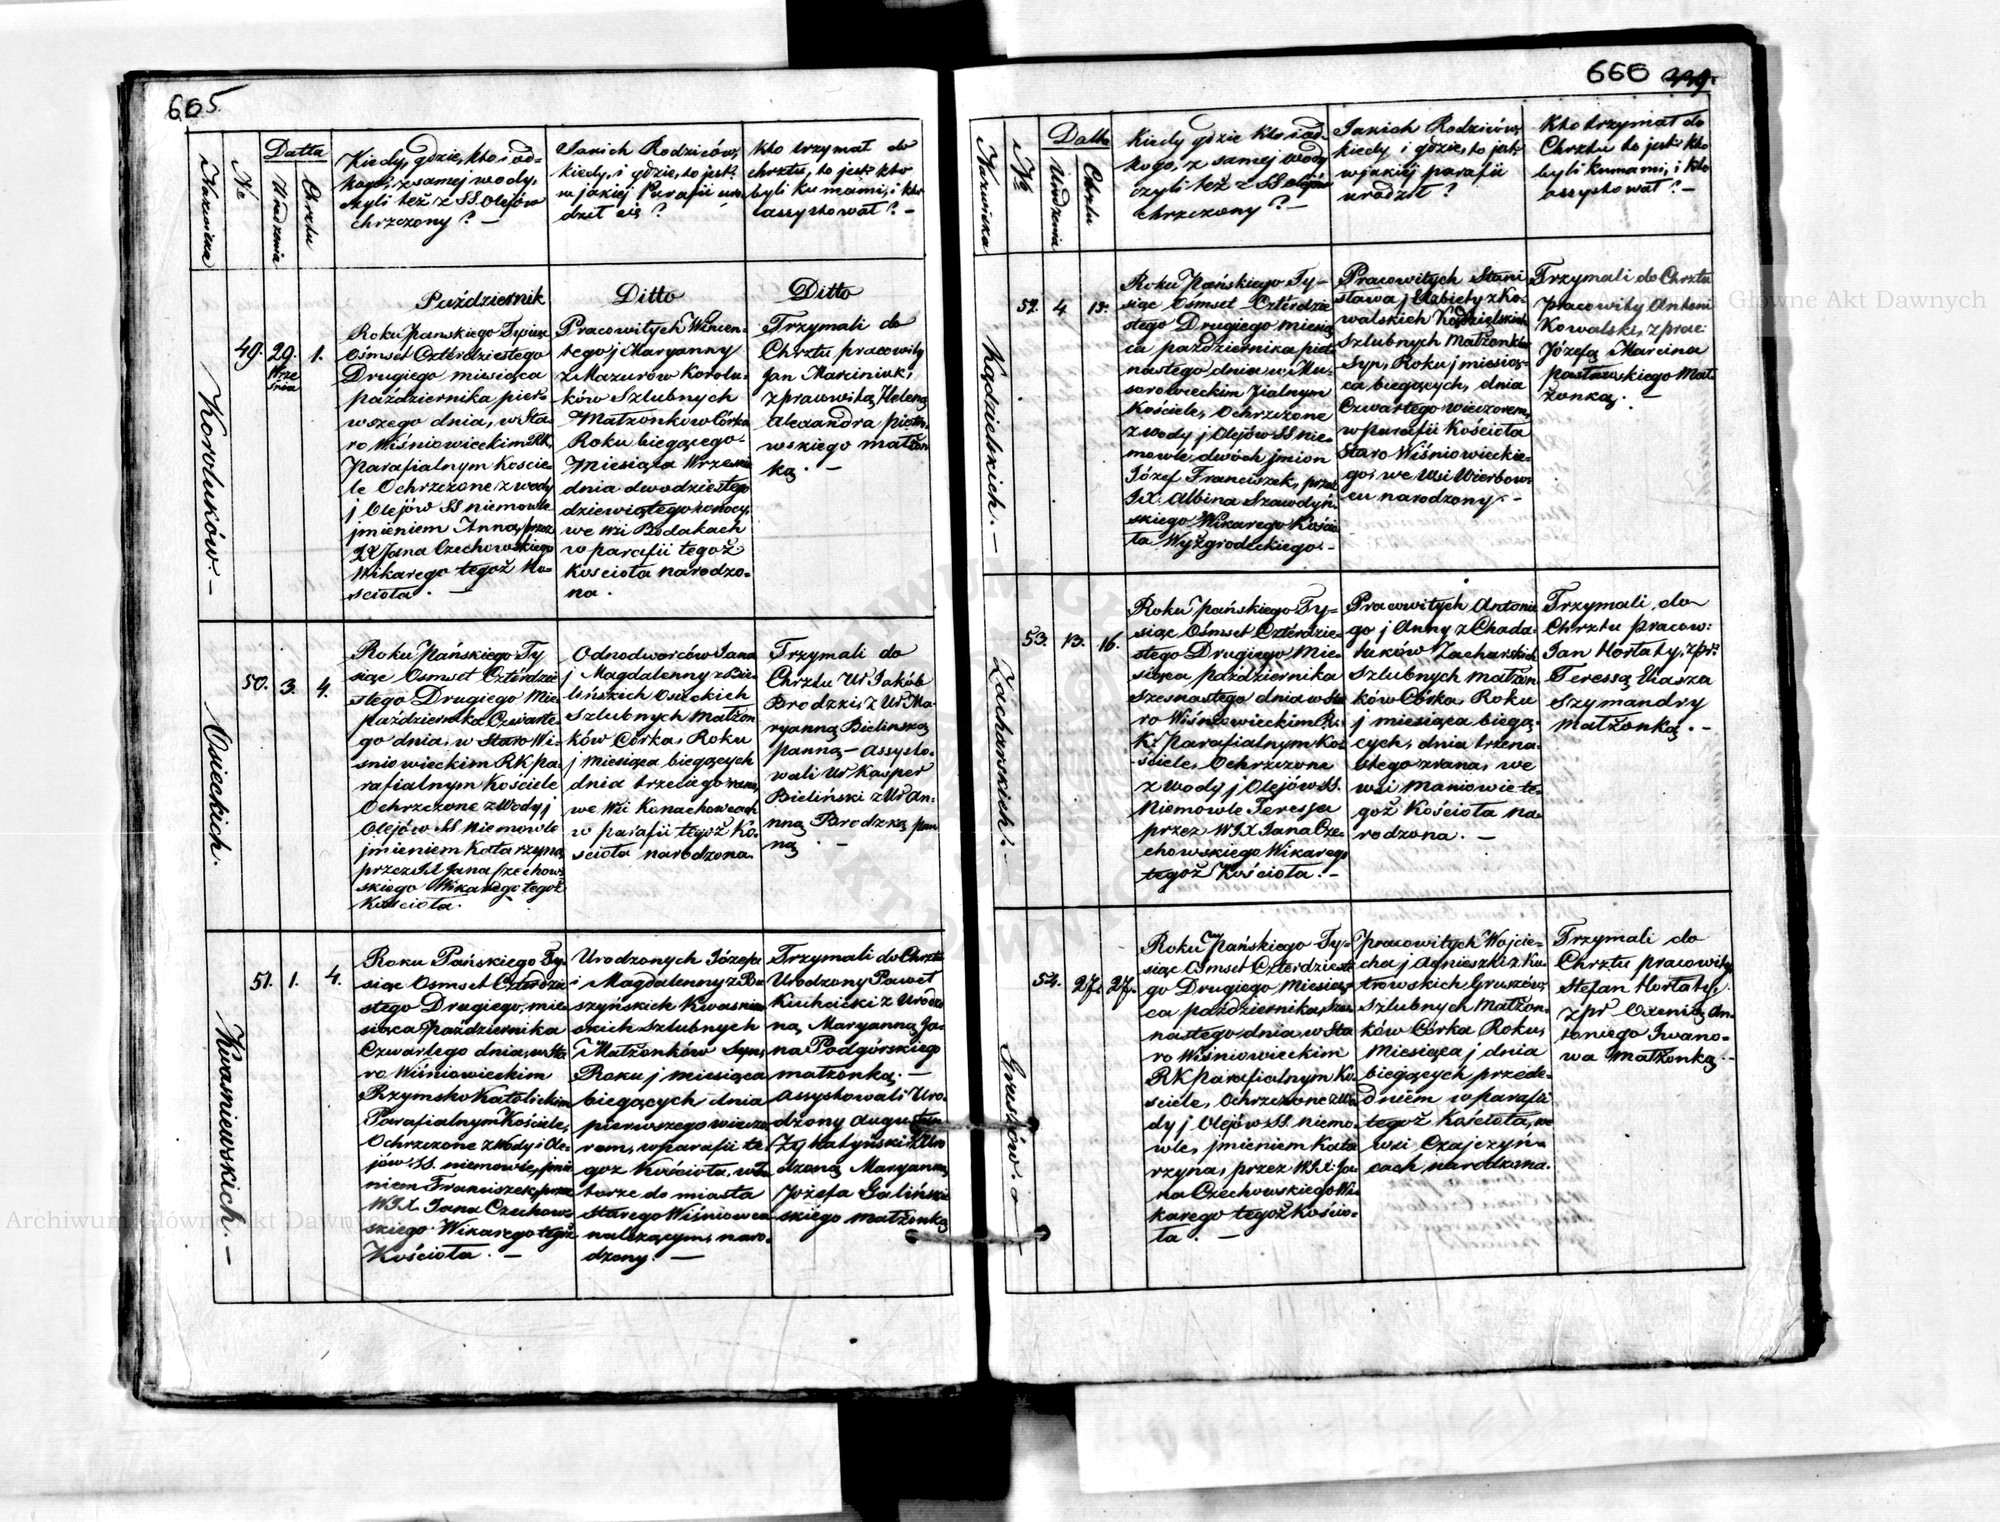 665.
Nazwiska
No
Datta
Urodzenia
Chrztu
Kiedy, gdzie, kto i od-
kogo, z samej wody,
czyli też z SS. Olejów
chrzczony? —
Jakich Rodziców,
kiedy, i gdzie, to jest:
w jakiej Parafii uro-
dził się?
kto trzymał do
chrztu, to jest: kto
byli kumami, i kto
assystował? —
Październik
Ditto
Ditto
Koroluków. —
49.
29.
Wrze
śnia
1.
Roku Pańskiego Tysiąc
Ośmset Czterdziestego
Drugiego miesiąca
października pier-
wszego dnia, w Sta-
ro Wiśniowieckim RK.
Parafialnym Koście-
le Ochrzczone z wody
j Olejów SS niemowle
jmieniem Anna, przez
JX Jana Czechowskiego
Wikarego tegoż Ko-
scioła. —
Pracowitych Wincen-
tego j Maryanny
z Mazurów Korolu-
ków Szlubnych
Małżonków Córka
Roku biegącego
Miesiąca Wrześnie
dnia dwodziestego
dziewiątego
we wsi Bodakach
w parafii tegoż
Kościoła narodzo-
na.
Trzymali do
Chrztu pracowity
Jan Marciniuk,
z pracowitą Heleną
Alexandra
wskiego małżon
ką. —
Osieckich.
50.
3.
4.
Roku Pańskiego Ty
siąc Osmset Czterdzie
stego Drugiego Mie
października Czwarte-
go dnia, w Staro Wi-
śniowieckim RK pa-
rafialnym Kościele
Ochrzczone z Wody j
Olejów SS Niemowle
jmieniem Katarzyna
przez JX Jana Czechow-
skiego Wikarego tegoż
Kościoła.
Odnodworców Jana
j Magdalenny z Bie
lińskich Osieckich
Szlubnych Małżon
ków Córka, Roku
j Miesiąca biegących
dnia trzeciego rano,
we Wsi Konachowcach
w parafii tegoż Ko-
scioła narodzona.
Trzymali do
Chrztu Ur Jakób
Brodzki, z Ur Ma-
ryanną Bielinską
panną — Assysto-
wali Ur Kasper
Bieliński z Ur An-
nną Brodzką pan
ną. —
Kwaniewskich. —
51.
1.
4.
Roku Pańskiego Ty-
siąc Osmset Czterdzie
stego Drugiego, mie-
siąca Października
Czwartego dnia, w Sta
ro Wiśniowieckim
Rzymsko Katolickim
Parafialnym Kościele,
Ochrzczone z Wody i Ole-
jów SS. niemowle, jmie
niem Franciszek, przez
WJX Jana Czechow-
skiego Wikarego tegoż
Kościoła. —
Urodzonych Józefa
i Magdalenny z Bu
szyńskich
skich Szlubnych
Małżonków Syn,
Roku j miesiąca
biegących dnia
pierwszego wieczo
rem, w parafii te-
goż Kościoła,
do miasta
starego Wiśniowca
należącym, naro-
dzony. —
Trzymali do Chrztu
Urodzony Paweł
Kuchcicki z Urodzo
ną, Maryanną Ja-
na Podgórskiego
małżonką. —
Assystowali Uro-
dzony Augustyn
z Uro
dzoną Maryanną,
Jozefa Galiński-
skiego małżonką
666
Nazwiska
No
Datta
Urodzenia
Chrztu
Kiedy gdzie kto i od-
kogo, z samej wody
czyli też z SS olejów
chrzczony? —
Jakich Rodziców,
kiedy i gdzie, to jest:
w jakiej parafii
urodził?
Kto trzymał do
Chrztu to jest: kto
byli kumami, i kto
assystował? —
Kądzielskich. —
52.
4
15.
Roku Pańskiego Ty-
siąc Ośmset Czterdzie
stego Drugiego miesią
ca października pięt-
nastego dnia w
filialnym
Kościele, Ochrzczone
z wody j Olejów SS nie-
mowle dwóch jmion
Józef Franciszek, przez
JX. Albina Szawodyń-
skiego Wikarego Kościo
ła Wyżgrodeckiego. —
Pracowitych Stani
sława j Elżbiety z Ko-
walskich Kądzielskich
Szlubnych Małżonków
Syn, Roku j miesią-
ca biegących, dnia
Czwartego wieczorem,
w parafii Kościoła
Staro Wiśniowieckie-
go, we Wsi Wierbow-
cu narodzony. —
Trzymali do Chrztu
pracowity Antoni
Kowalski, z prac:
Józefą Marcina
Pastawskiego Mał-
żonką. —
Zacharskich. —
53.
13.
16.
Roku Pańskiego Ty-
siąc Ośmset Czterdzie-
stego Drugiego Mie-
siąca października
szesnastego dnia w Sta
ro Wiśniowieckim R.
K. parafialnym Ko-
ściele, Ochrzczone
z Wody j Olejów SS.
Niemowle Teressa
przez WJX Jana Cze-
chowskiego Wikarego
tegoż Kościoła. —
Pracowitych Antonie
go j Anny z Chada-
luków Zacharskich
szlubnych małżon-
ków Córka Roku
j miesiąca biegą-
cych, dnia trzena-
stego zrana, we
wsi Maniowie te-
goż Kościoła na-
rodzona. —
Trzymali do
Chrztu pracow:
Jan Hortaty, z pr:
Teressą Iliasza
Szymandry
małżonką. —
Gruszów. —
54.
27.
27.
Roku Pańskiego Ty-
siąc Osmset Czterdzieste
go Drugiego Miesią-
ca października,
nastego dnia w Sta
ro Wiśniowieckim
RK parafialnym Ko-
sciele, Ochrzczone z Wo
dy j Olejów SS. niemo-
wle, jmieniem Kata
rzyna, przez WJX. Ja-
na Czechowskiego Wi-
karego tegoż Kościo-
ła. —
Pracowitych Wojcie-
cha j Agnieszki z Ku-
trowskich Gruszów,
Szlubnych Małżon-
ków Córka Roku,
Miesiąca j dnia
biegących przede-
dniem w parafii
tegoż Kościoła, we
wsi Czajczyń-
cach narodzona.
Trzymali do
Chrztu pracowity
Stefan Hortaty,
z pr Oxenią An-
toniego Iwano-
wa Małżonką. —
Archiwum Główne Akt Dawnych
Archiwum Główne Akt Dawnych